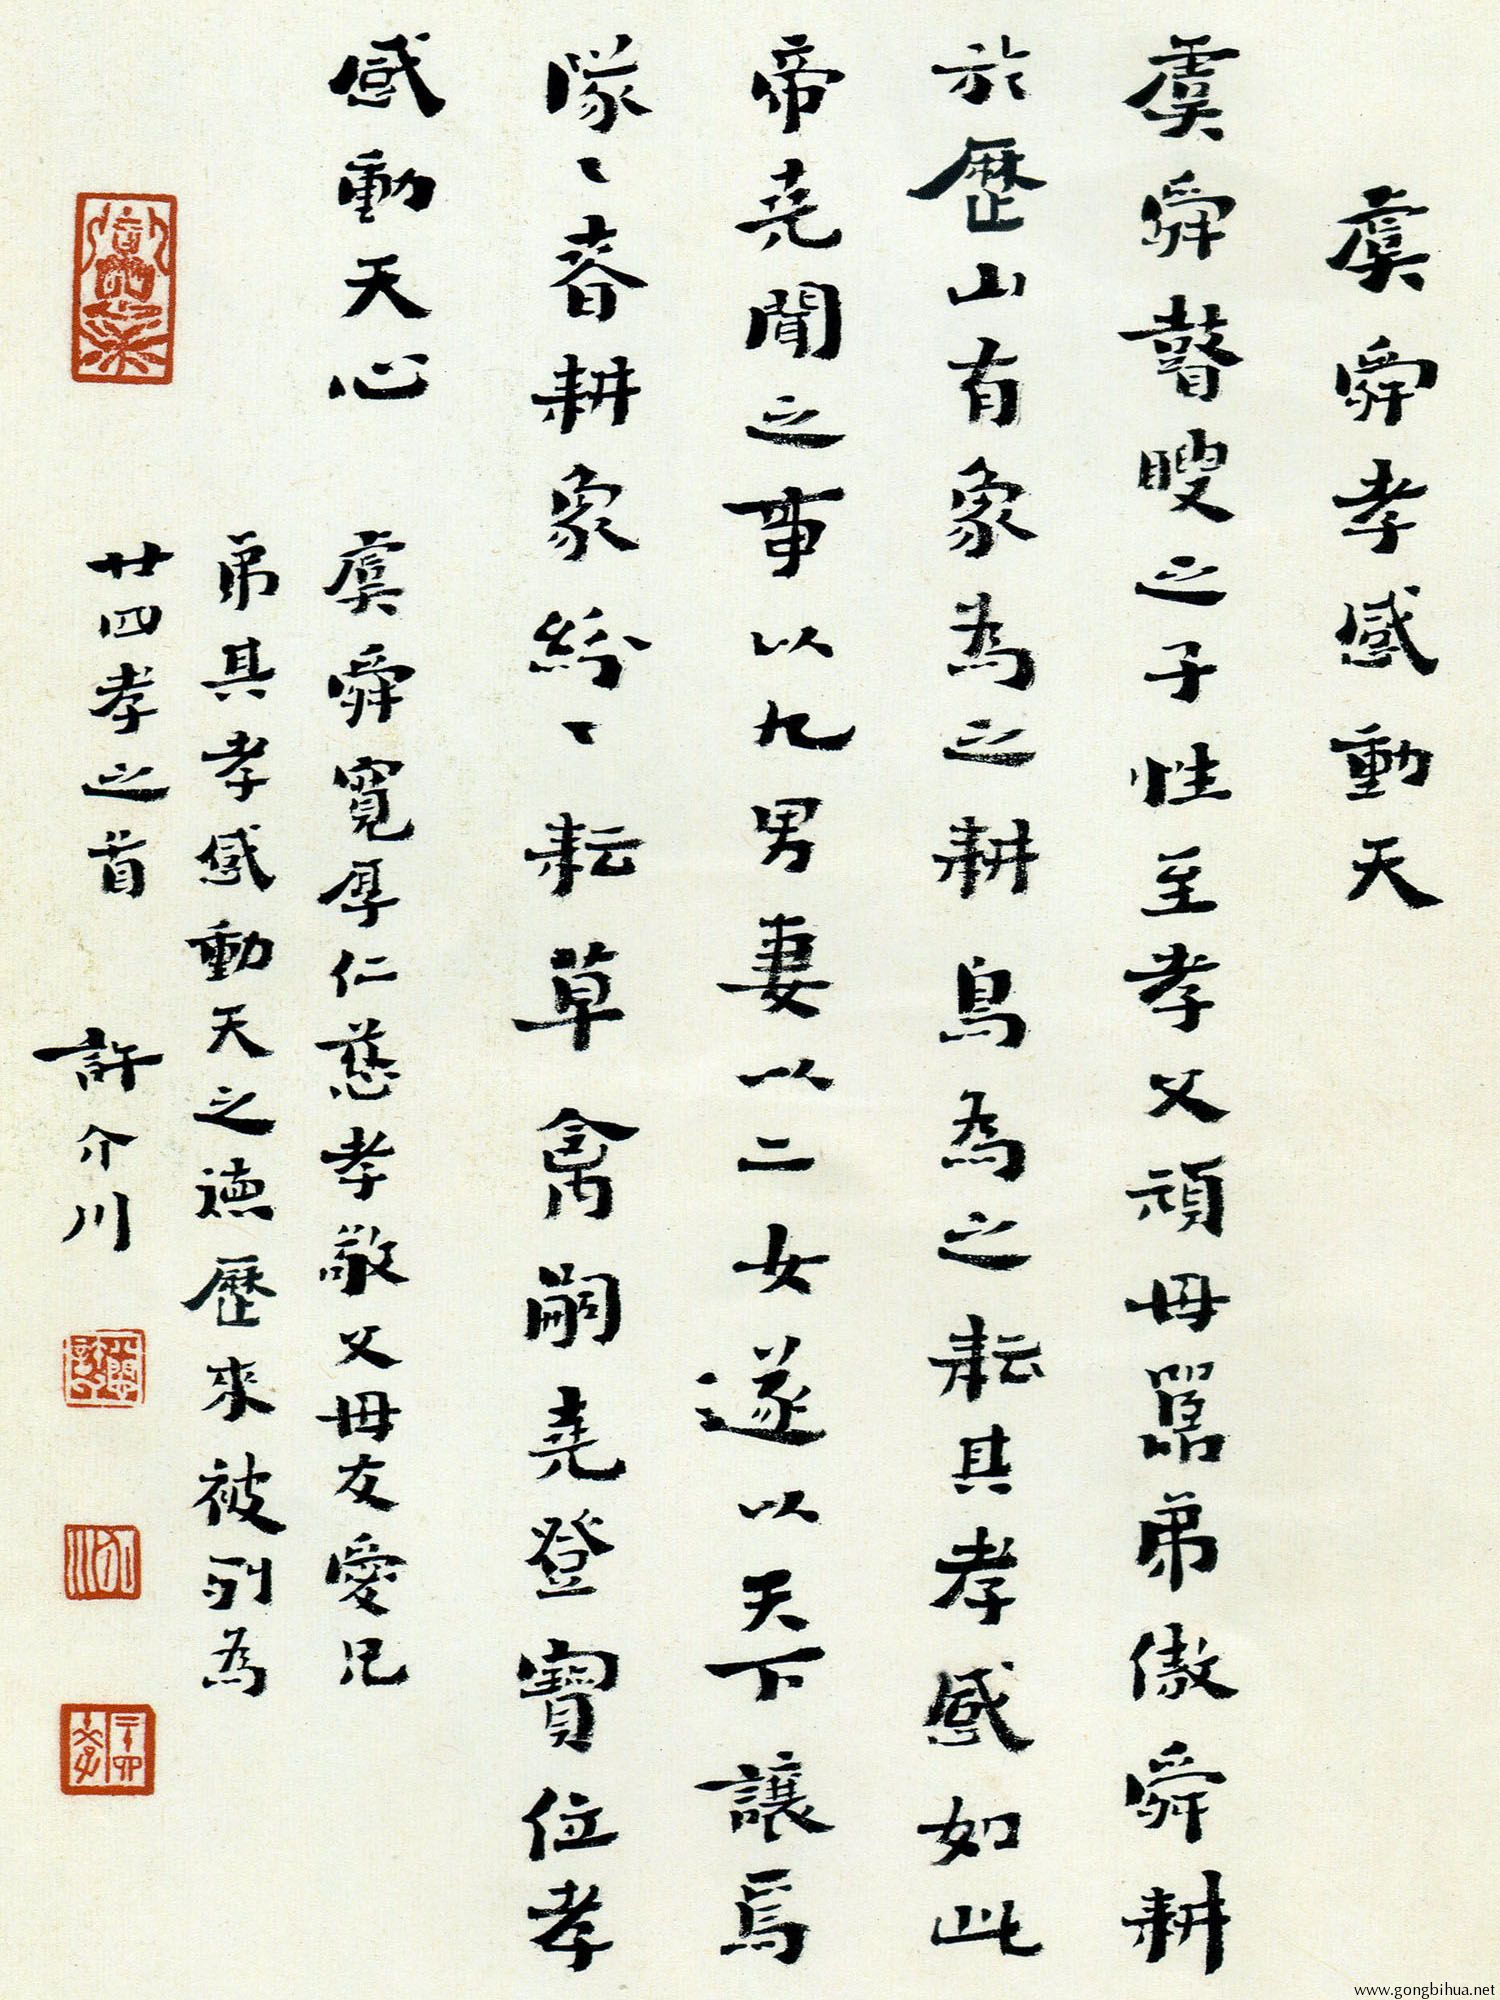 虞舜孝感動天
虞舜瞽瞍之子性至孝父頑母嚚弟傲舜耕
於歷山有象為之耕鳥為之耘其孝感如此
帝堯聞之事以九男妻以二女遂以天下讓焉
隊〻春耕象紛〻耘草禽嗣堯登寶位孝
感動天心
虞舜寬厚仁慈孝敬父母友愛兄
弟其孝感動天之德歷來被列為
廿四孝之首
許介川
www.gongbihua.net